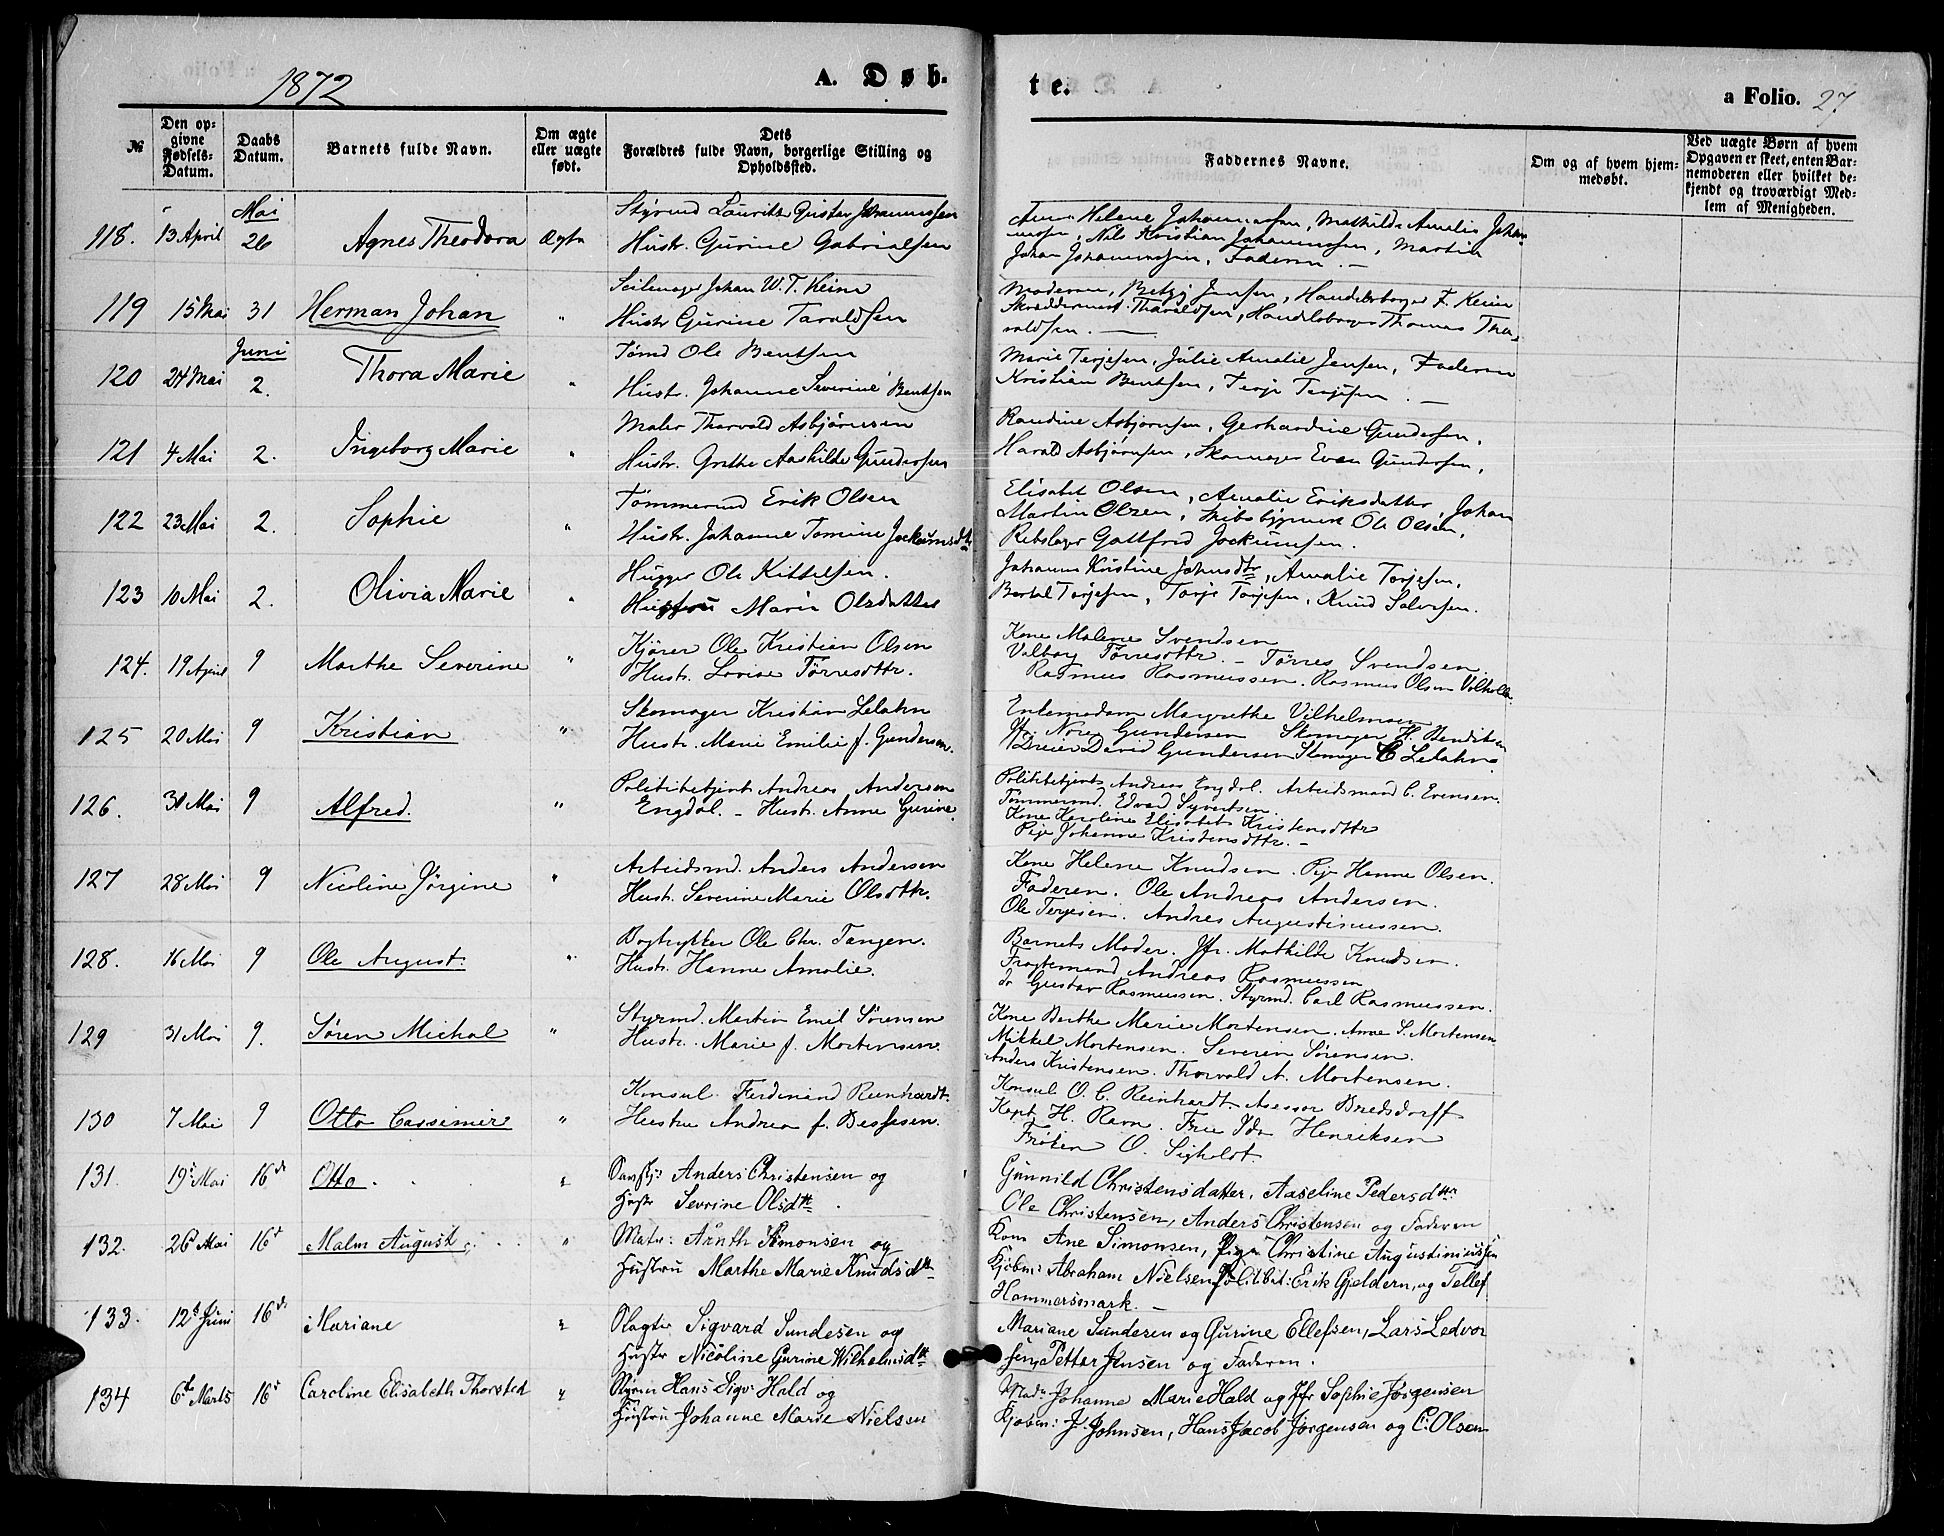 1872
A. Døb-
te.
a Folio. 27
№
Den op-
givne
Fødsels-
Datum.
Daabs
Datum.
Barnets fulde Navn.
Om ægte
eller uægte
født.
Dets
Forældres fulde Navn, borgerlige Stilling og
Opholdssted.
Faddernes Navne.
Om og af hvem hjem-
medøbt.
Ved uægte Børn af hvem
Opgaven er skeet, enten Bar-
nemoderen eller hvilket be-
kjendt og troværdigt Med-
lem af Menigheden.
Mai
118. 13 April 26 Agnes Theodora Ægte
Styrmd Lauritz Gustav Johannessen
Hustr. Gurine Gabrielsen
Helene Johannessen, Mathilde Amalie Johan-
nessen, Nils Kristian Johannessen, Martin
Johan Johannessen, Faderen. —
119 15 Mai 31 Herman Johan "
Seilmager Johan W. T. Keim
Hustr Gurine Taraldsen
Moderen, Betzy Jensen, Handelsborger F. Keim
Skreddermest. Tharaldsen, Handelsborger Thomas Tha-
raldsen. —
Juni
120 24 Mai 2. Thora Marie "
Tømd Ole Bentsen
Hustr. Johanne Severine Bentsen
Marie Terjesen, Julie Amalie Jensen, Faderen
Kristian Bentsen, Terje Terjesen. —
121 4 Mai 2. Ingeborg Marie "
Maler Thorvald Asbjørnsen
Hustr. Grethe Aashilde Gundersen
Randine Asbjørnsen, Gerhardine Gundersen,
Harald Asbjørnsen, Skomager Even Gundersen,
122 23 Mai 2. Sophie "
Tømmermd Erik Olsen
Hustr. Johanne Tomine Jockumsdtr
Elisabet Olsen, Amalie Eriksdatter, Johan
Martin Olsen, Skibsbygmest Ole Olsen,
Rebslager Gottfred Jockumsen.
123 10 Mai 2. Olivia Marie "
Hugger Ole Kittelsen.
Hustru Maria Olsdatter
Johanne Kristine Johnsdtr, Amalie Torjesen,
Bertel Torjesen, Torje Torjesen, Knud Salvesen.
124. 19 April 9 Marthe Severine "
Kjører Ole Kristian Olsen
Hustr. Lovise Tørresdttr.
Kone Malene Svendsen
Valborg Tørresdttr. — Tørres Svendsen
Rasmus Rasmussen. Rasmus Olsen
125 20 Mai 9 Kristian "
Skomager Kristian Lelahn
Hustr. Marie Emilie f. Gundersen.
Enkemadam Margrethe Vilhelmsen
Nora Gundersen Skomager H. Bendiksen
Dreier David Gundersen Skomager C Lelahn.
126. 31 Mai 9 Alfred. "
Politibetjent Andreas Andersen
Engdal. — Hustr. Anne Gurine
Politibetjent Andreas Engdal. Arbeidsmand C. Evensen.
Tømmermd. Edvard Syvertsen
Kone Karoline Elisabet Kristensdttr
Pige Johanne Kristensdttr. —
127 28 Mai 9 Nicoline Jørgine "
Arbeidsmd. Anders Andersen
Hustr. Severine Marie Olsdttr.
Kone Helene Knudsen. Pige Hanne Olsen.
Faderen. Ole Andreas Andersen.
Ole Terjesen. Andres Augustinussen.
128. 16 Mai 9 Ole August. "
Bogtrykker Ole Chr. Tangen.
Hustr. Hanne Amalie.
Barnets Moder. Jfr. Mathilde Knudsen.
Fragtemand Andreas Rasmussen
do Gustav Rasmussen. Styrmd. Carl Rasmussen.
129 31 Mai 9. Søren Michal "
Styrmd. Martin Emil Sørensen
Hustr. Marie f. Mortensen.
Kone Berthe Marie Mortensen. Anne S. Mortensen
Mikkel Mortensen. Severin Sørensen.
Anders Kristensen. Thorvald A. Mortensen.
130 7 Mai 9 Otto Cassimir "
Konsul Ferdinand Reinhardt.
Hustru Andrea f. Bessesen.
Konsul O. C. Reinhardt. Asessor Bredsdorff
Kapt. H. Ravn. Frue Ida Henriksen
Frøken O. Sigholdt.
131. 19 Mai 16de Otto. "
Anders Christensen og
Hustr Sevrine Olsdttr.
Gunnild Christensdatter, Aaseline Pedersdttr
Ole Christensen, Anders Christensen og Faderen
132. 26 Mai 16d Malm August. "
Matr: Arnth Simonsen og
Hustru Marthe Marie Knudsdttr
Kone Ane Simonsen, Pigen Christine Augustiniussen
Kjøbm: Abraham Nielsen Politibet: Erik Gjeldern, og Tellef
Hammersmark. —
133. 12 Juni 16de Mariane "
Slagter Sigvard Sundesen og
Hustr Nicoline Gurine Wilhelmsdttr
Mariane Sundesen og Gurine Ellefsen, Lars Ledvor
sen, Petter Jensen og Faderen.
134 6te Marts 16d Caroline Elisabeth Thorsted "
Styrm Hans Sigv: Hald og
Hustru Johanne Marie Nielsen
Mad: Johanne Marie Hald og Jfr Sophie Jørgensen
Kjøbm: J. Johnsen, Hans Jacob Jørgensen og C. Olsen